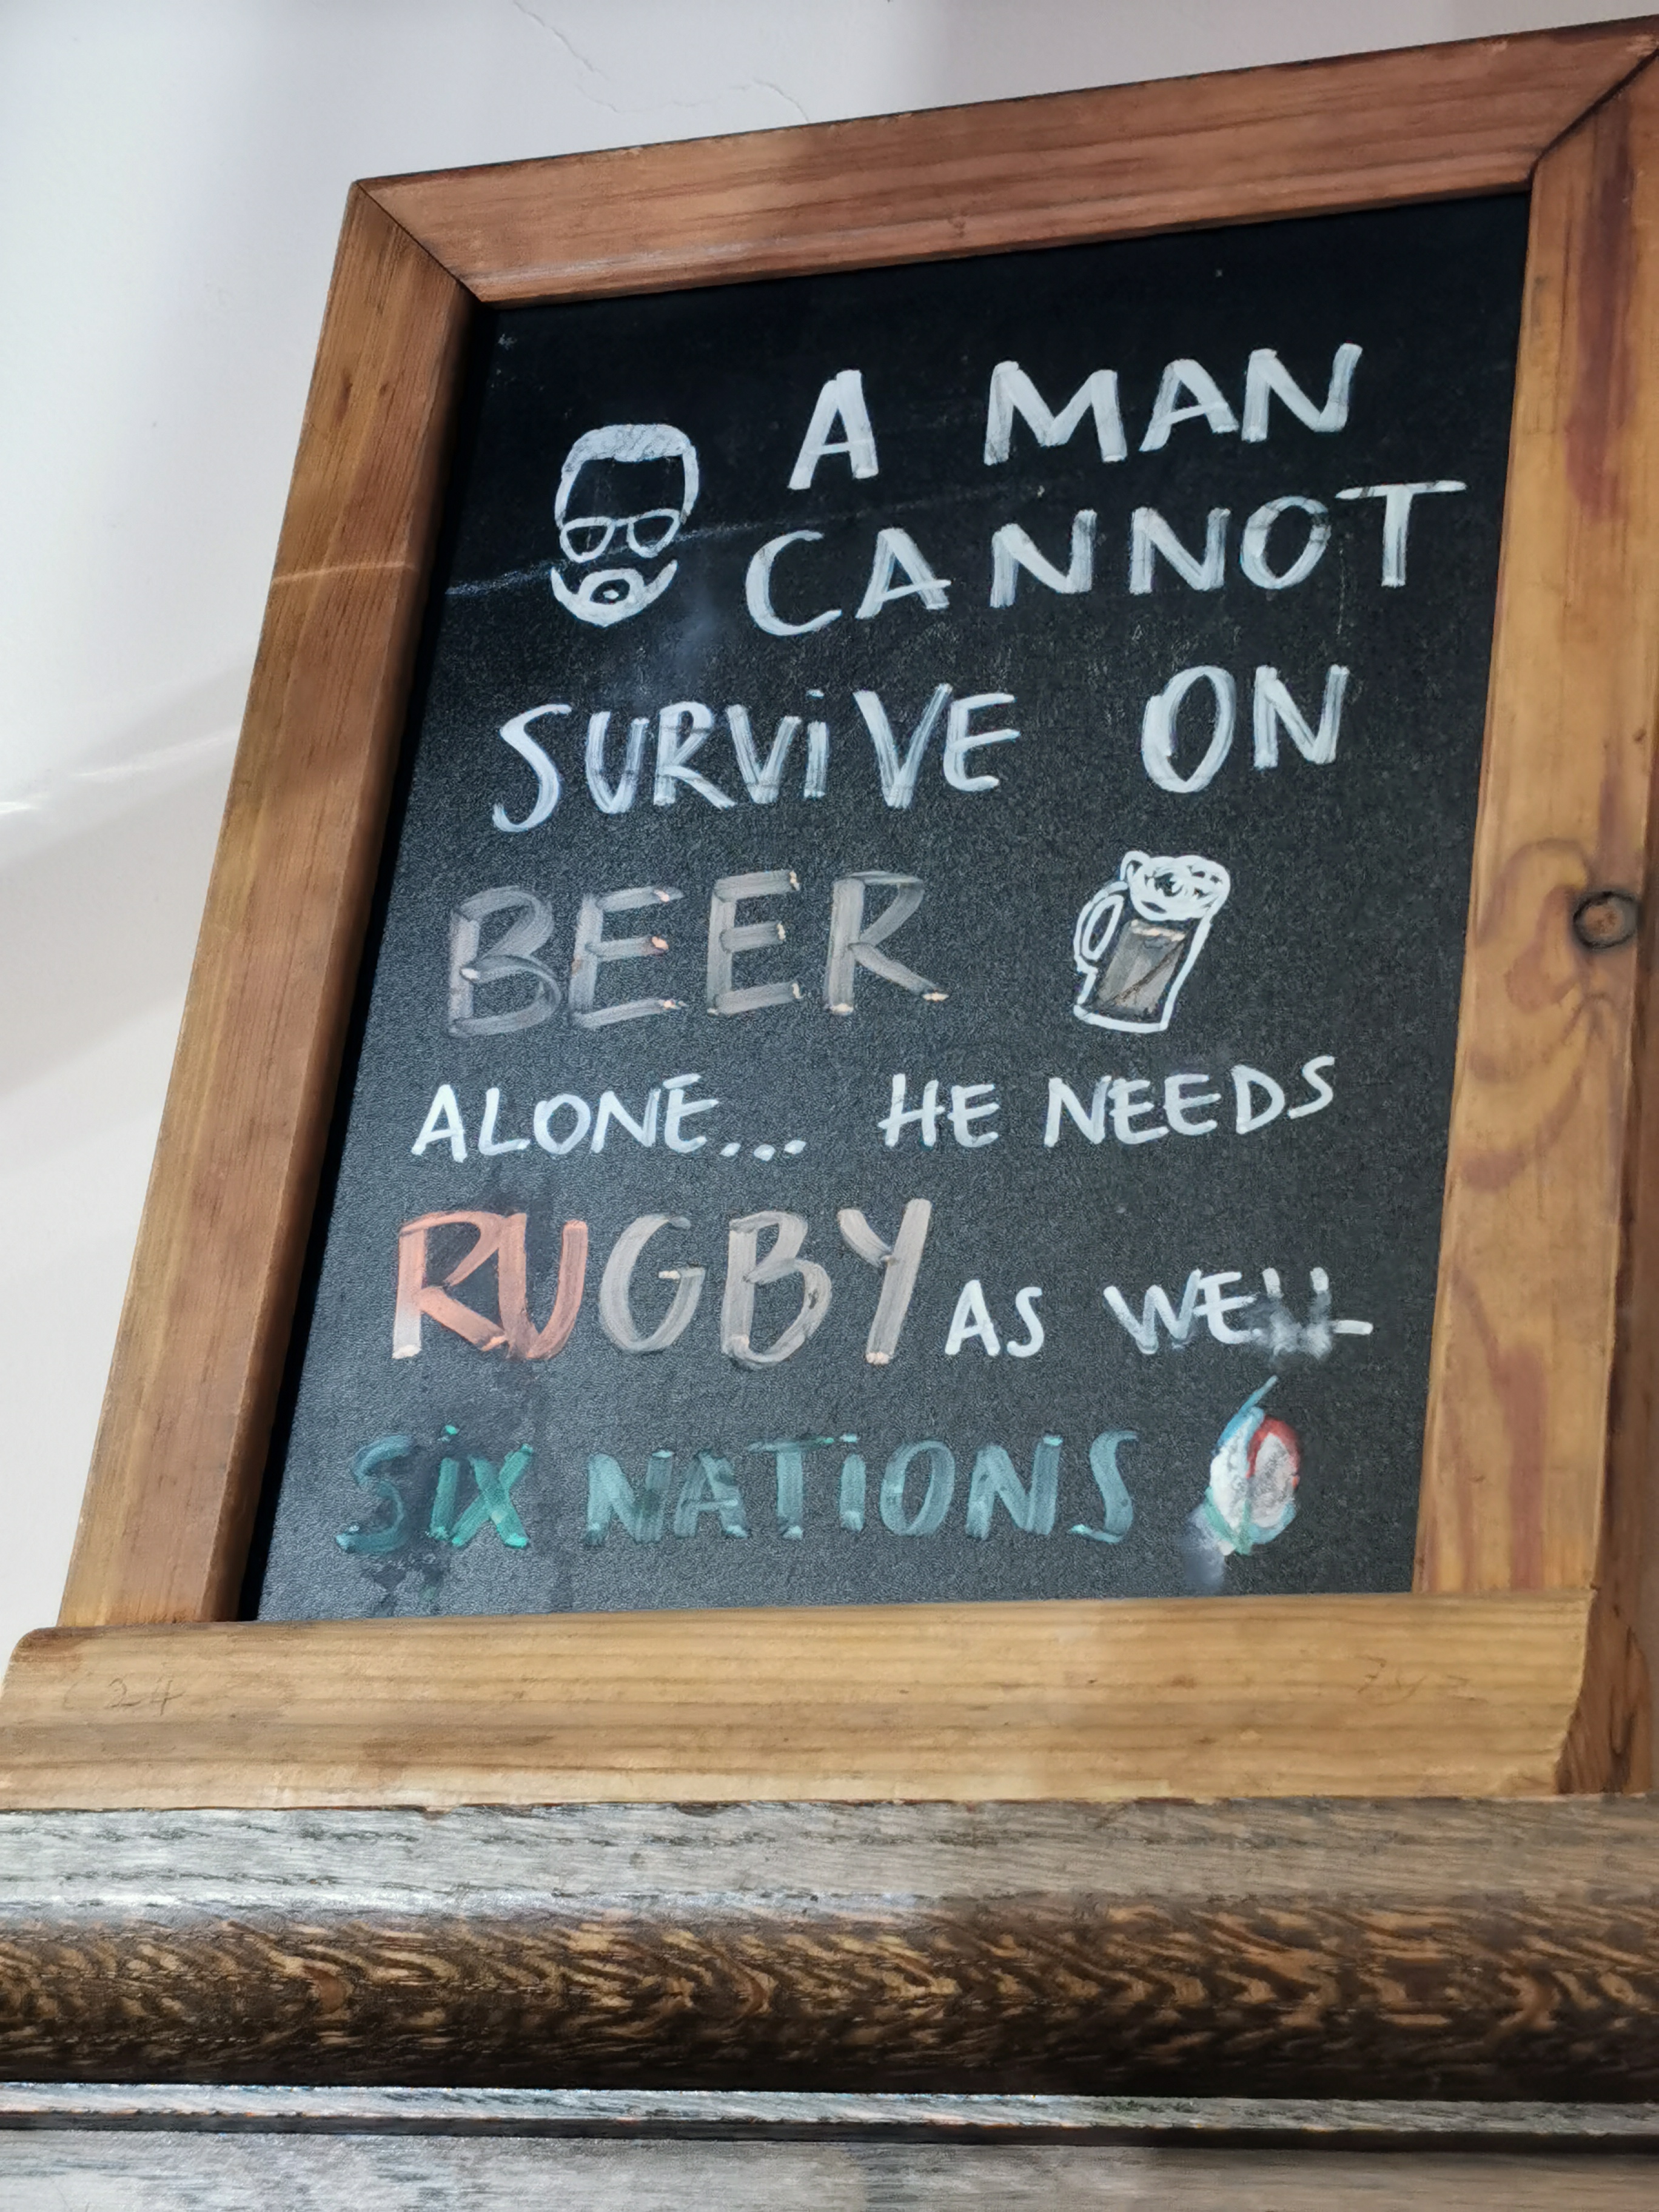 A MAN
CANNOT
SURViVE ON
BEER
ALONE... HE NEEDS
RUGBY AS WELL
SiX NATiONS